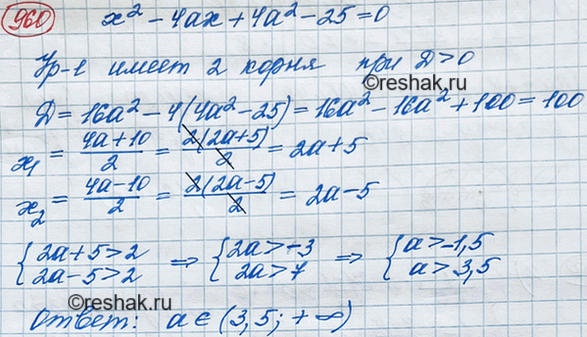 960 x² - 4ax + 4a² - 25 = 0
Ур-е имеет 2 корня при D > 0
©reshak.ru
D = 16a² - 4(4a² - 25) = 16a² - 16a² + 100 = 100
x₁ = (4a + 10)/2 = 2(2a + 5)/2 = 2a + 5
x₂ = (4a - 10)/2 = 2(2a - 5)/2 = 2a - 5
©reshak.ru
{2a + 5 > 2 ⇒ {2a > -3 ⇒ {a > -1,5
2a - 5 > 2 2a > 7 a > 3,5
©reshak.ru
Ответ: a ∈ (3,5; +∞)